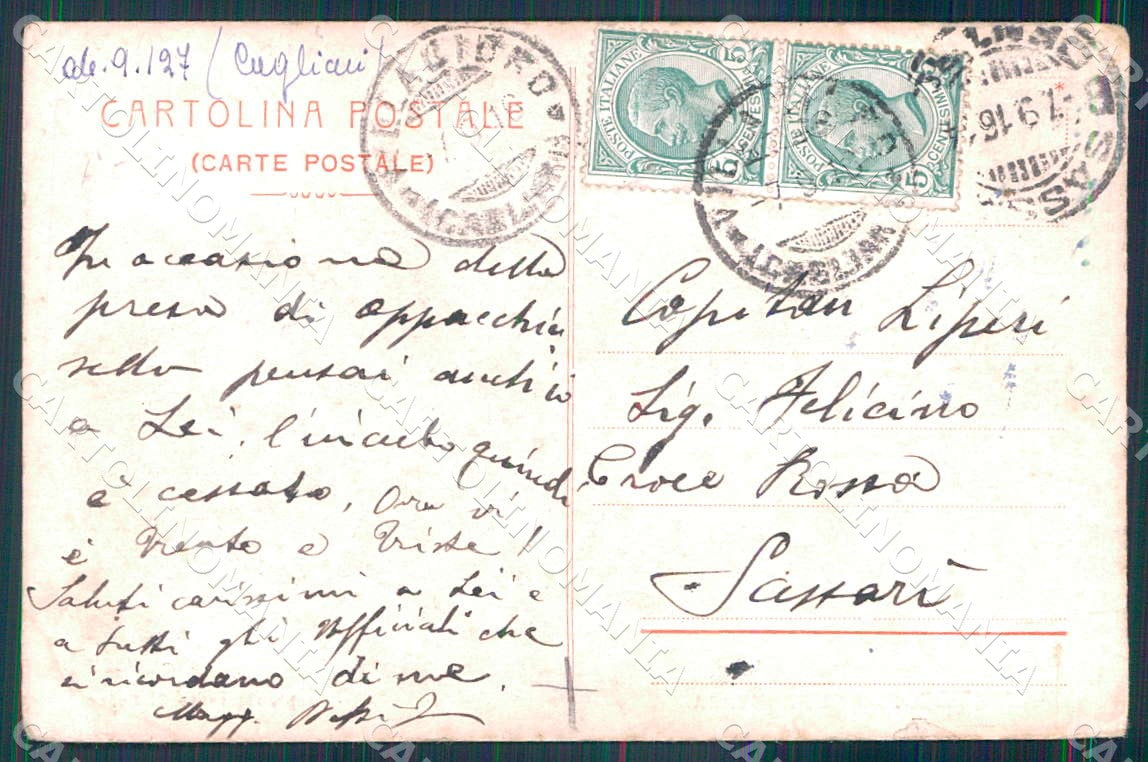 ad. 9.127 (Cagliari)
CARTOLINA POSTALE
(CARTE POSTALE)
POSTE ITALIANE
CENTESIMI 5
POSTE ITALIANE
CENTESIMI 5
VILLACIDRO
(CAGLIARI)
7.9.16
SASSARI
In occasione della
presa di
pensai anch'io
a Lei, l'incubo quindi
è cessato, Ora vi
è Trento e Trieste!
Saluti carissimi a Lei e
a tutti gli Ufficiali che
si ricordano di me.
Magg.
Capitan Liperi
Sig. Felicino
Croce Rossa
Sassari
CARTOLINOMANIA